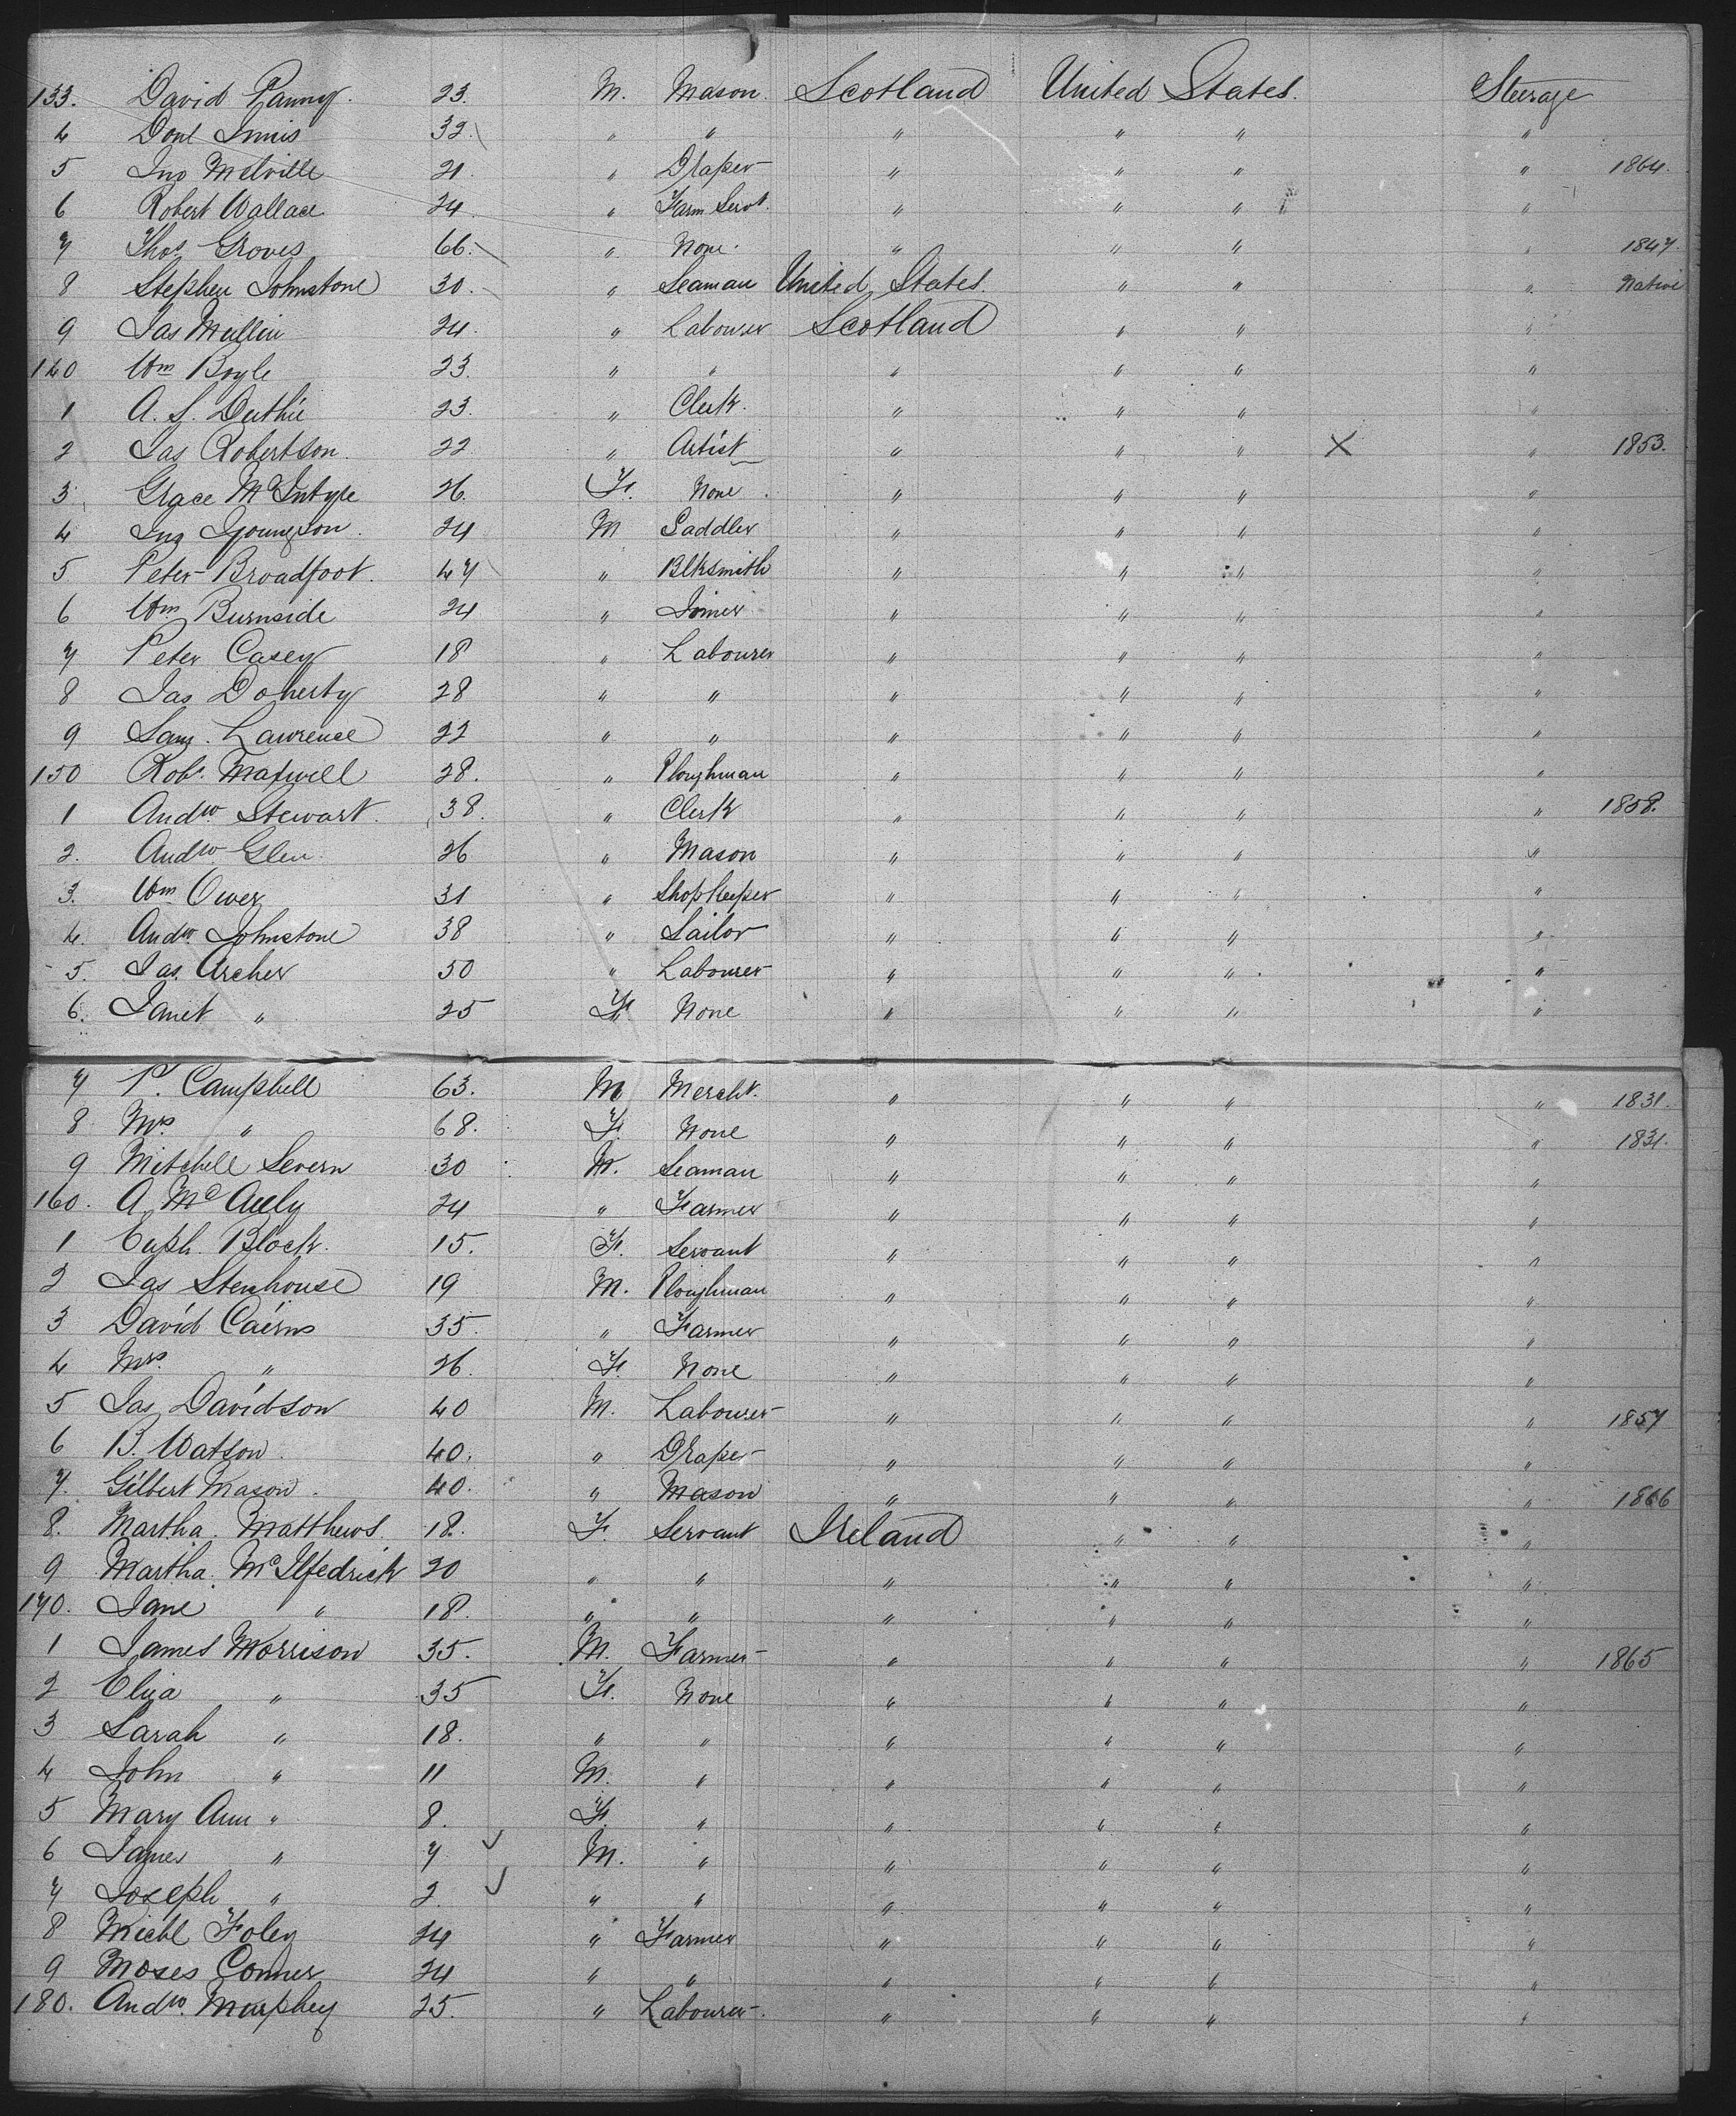 133. David Panny. 23. M. Mason. Scotland United States. Steerage
4 Donl Innis 32. " " " " " "
5 Jno Melville 21. " Draper " " " " 1864.
6 Robert Wallace 24. " Farm Servt. " " " "
7 Thos Groves 66. " None. " " " " 1847.
8 Stephen Johnstone 30. " Seaman United States. " " " Native
9 Jas Mullin 24. " Labourer Scotland " " "
140 Wm Boyle 23. " " " " " "
1 A. S. Duthie 23. " Clerk. " " " "
2 Jas Robertson. 22 " Artist " " " X " 1853.
3 Grace McIntyre 26. F. None. " " " "
4 Jno Youngson. 24 M Saddler " " " "
5 Peter Broadfoot. 47 " Blksmith " " " "
6 Wm. Burnside 24. " Joiner " " " "
7 Peter Casey 18 " Labourer " " " "
8 Jas Doherty 28 " " " " " "
9 Saml. Lawrence 22 " " " " " "
150 Robt. Maxwell 28. " Ploughman " " " "
1 Andw. Stewart. 38. " Clerk " " " " 1858.
2. Andw. Glen. 26 " Mason " " " "
3. Wm Ower 31 " Shopkeeper " " " "
4. Andw. Johnstone 38 " Sailor " " " "
5. Jas. Archer 50 " Labourer " " " "
6. Janet " 25 F. None " " " "
7 P. Campbell 63. M Mercht. " " " " 1831.
8 Mrs. " 68. F. None " " " " 1831.
9 Mitchell Severn 30 M. Seaman " " " "
160. A. McAuly 24 " Farmer " " " "
1 Euph. Block. 15. F. Servant " " " "
2 Jas Stenhouse 19 M. Ploughman " " " "
3 David Cairns 35. " Farmer " " " "
4 Mrs. " 26. F. None " " " "
5 Jas Davidson 40 M. Labourer " " " " 1857
6 B. Watson. 40. " Draper " " " "
7. Gilbert Mason. 40. " Mason " " " " 1866
8. Martha. Matthews. 18. F Servant Ireland " " "
9 Martha. McIlfedrick 20 " " " " " "
170. Jane " 18. " " " " " "
1 James Morrison 35. M. Farmer " " " " 1865
2 Eliza " 35 F. None " " " "
3 Sarah " 18. " " " " " "
4 John " 11 M. " " " " "
5 Mary Ann " 8. F. " " " " "
6 James " 7 M. " " " " "
7 Joseph " 2. " " " " " "
8 Michl Foley 24 " Farmer " " " "
9 Moses Conner 24 " " " " " "
180. Andw. Murphey 25. " Labourer. " " " "